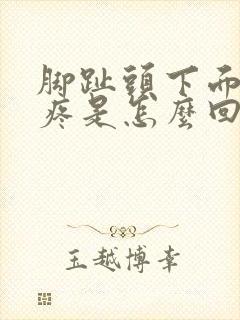 腳趾頭下面
疼是怎麼回
玉越博幸